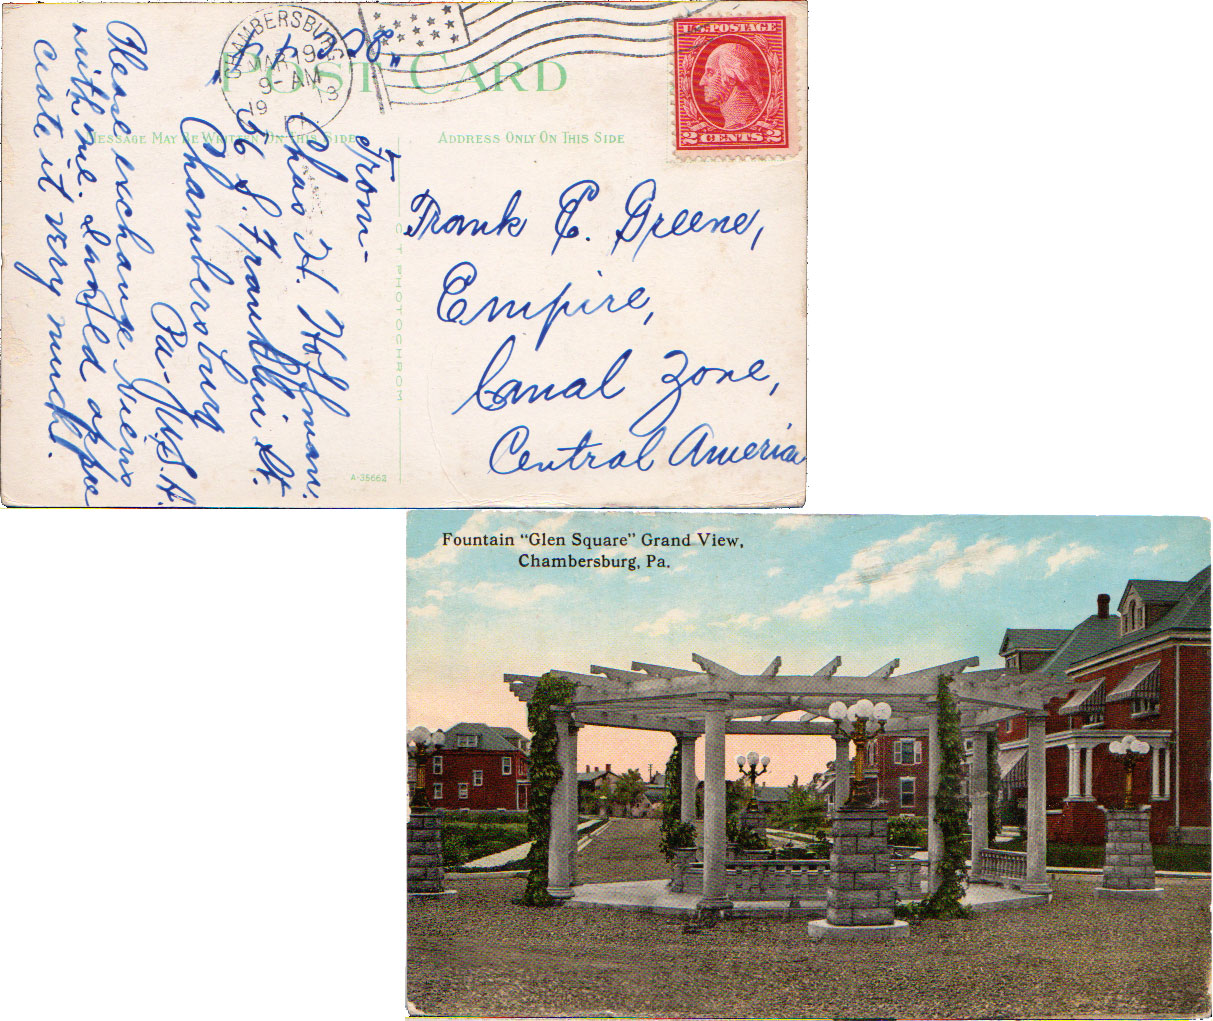 POST CARD
CHAMBERSBURG
MAR 19
9-AM
19 13
U.S. POSTAGE
2 CENTS 2
MESSAGE MAY BE WRITTEN ON THIS SIDE
ADDRESS ONLY ON THIS SIDE
From-
Chas H. Hoffman.
56 S. Franklin St.
Chambersburg
Pa- U.S.A.
Please exchange views
with me. I would appre
ciate it very much.
Frank C. Greene,
Empire,
Canal Zone,
Central America
PHOTOCHROM
A-35662
Fountain "Glen Square" Grand View,
Chambersburg, Pa.